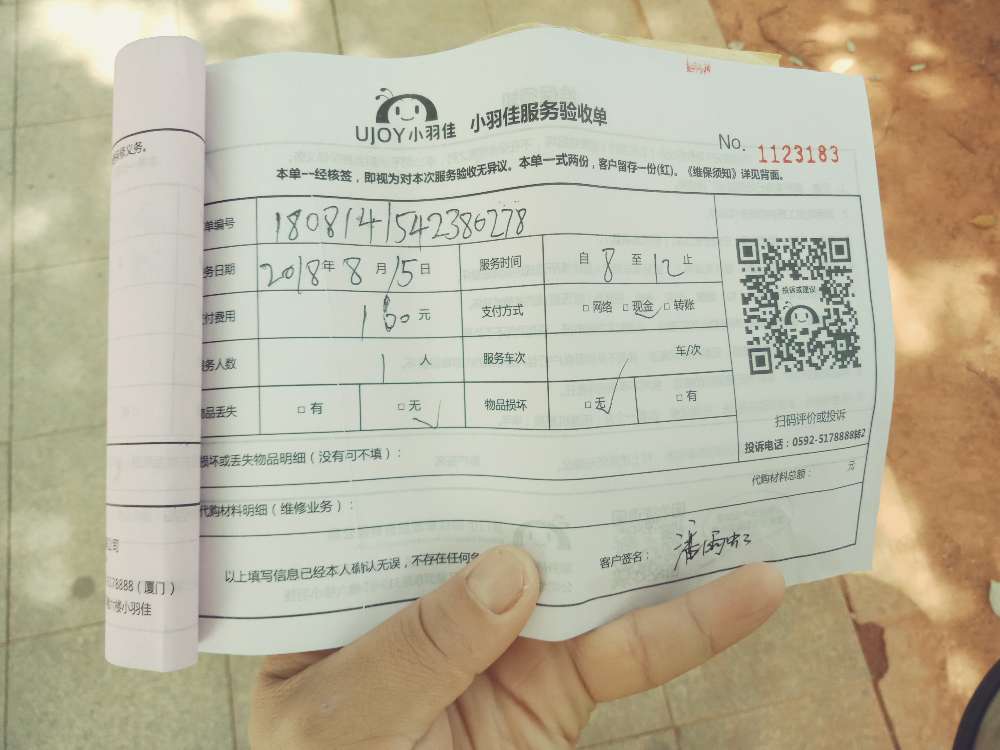 UJOY小羽佳 小羽佳服务验收单
No. 1123183
本单一经核签，即视为对本次服务验收无异议。本单一式两份，客户留存一份(红)。《维保须知》详见背面。
单编号 1808141542386278
务日期 2018年8月15日 服务时间 自8至12止
付费用 160元 支付方式 □网络 □现金 □转账
务人数 1人 服务车次 车/次
物品丢失 □有 □无 物品损坏 □无 □有
投诉或建议
扫码评价或投诉
投诉电话：0592-5178888转2
损坏或丢失物品明细（没有可不填）：
代购材料明细（维修业务）： 代购材料总额： 元
以上填写信息已经本人确认无误，不存在任何
客户签名：
保修义务。
公司
5178888（厦门）
楼小羽佳